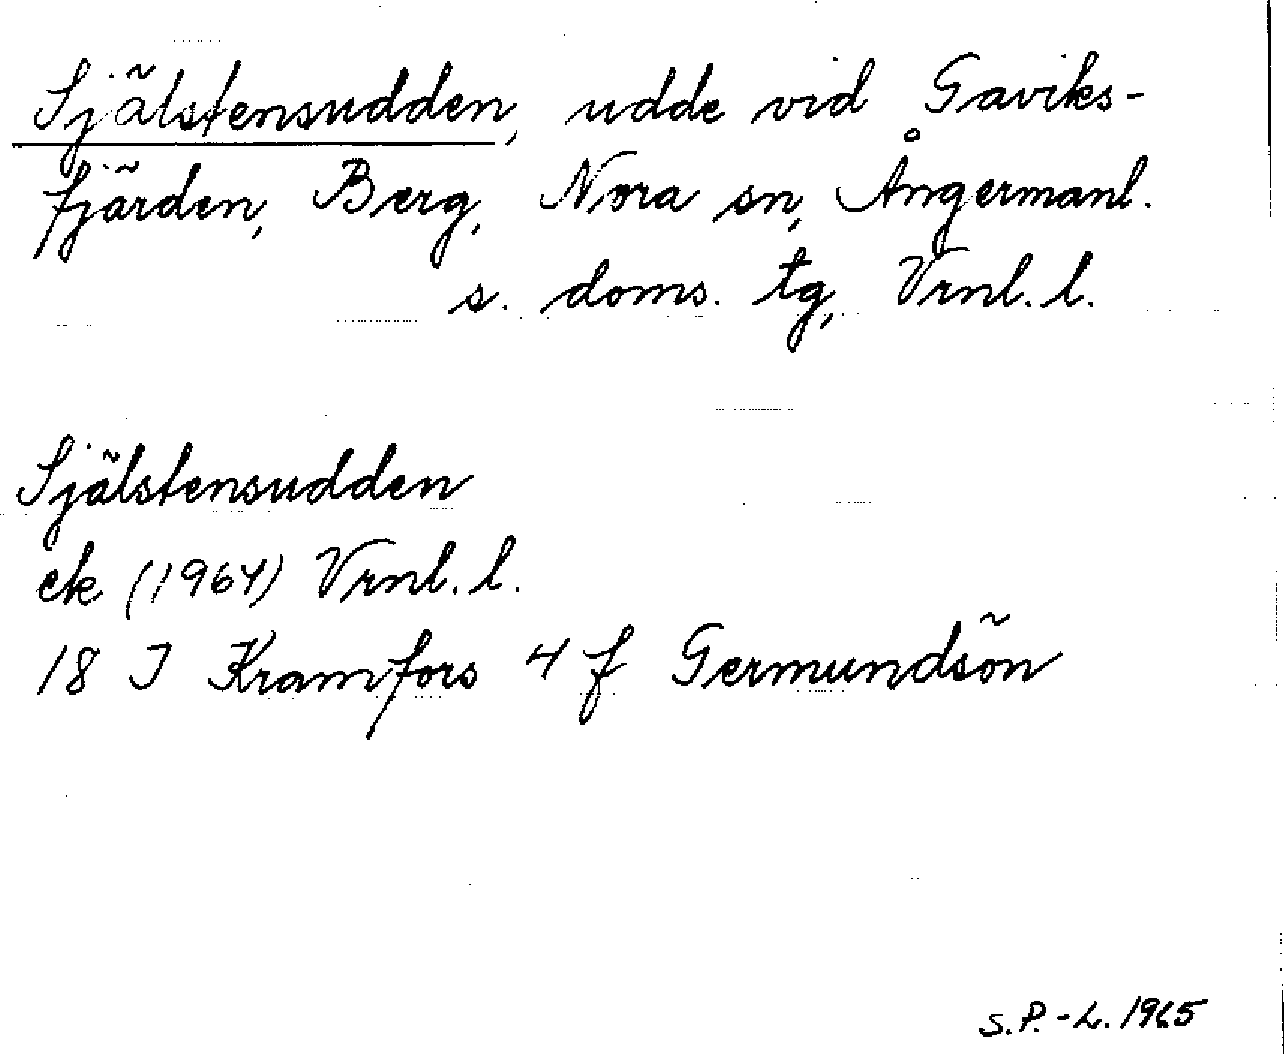 Själstensudden, udde vid Gaviks-
fjärden, Berg, Nora sn, Ångermanl.
s. doms. tg, Vrnl. l.
Själstensudden
ek (1964) Vrnl. l.
18 J Kramfors 4 f Germundsön
S.P.-L. 1965